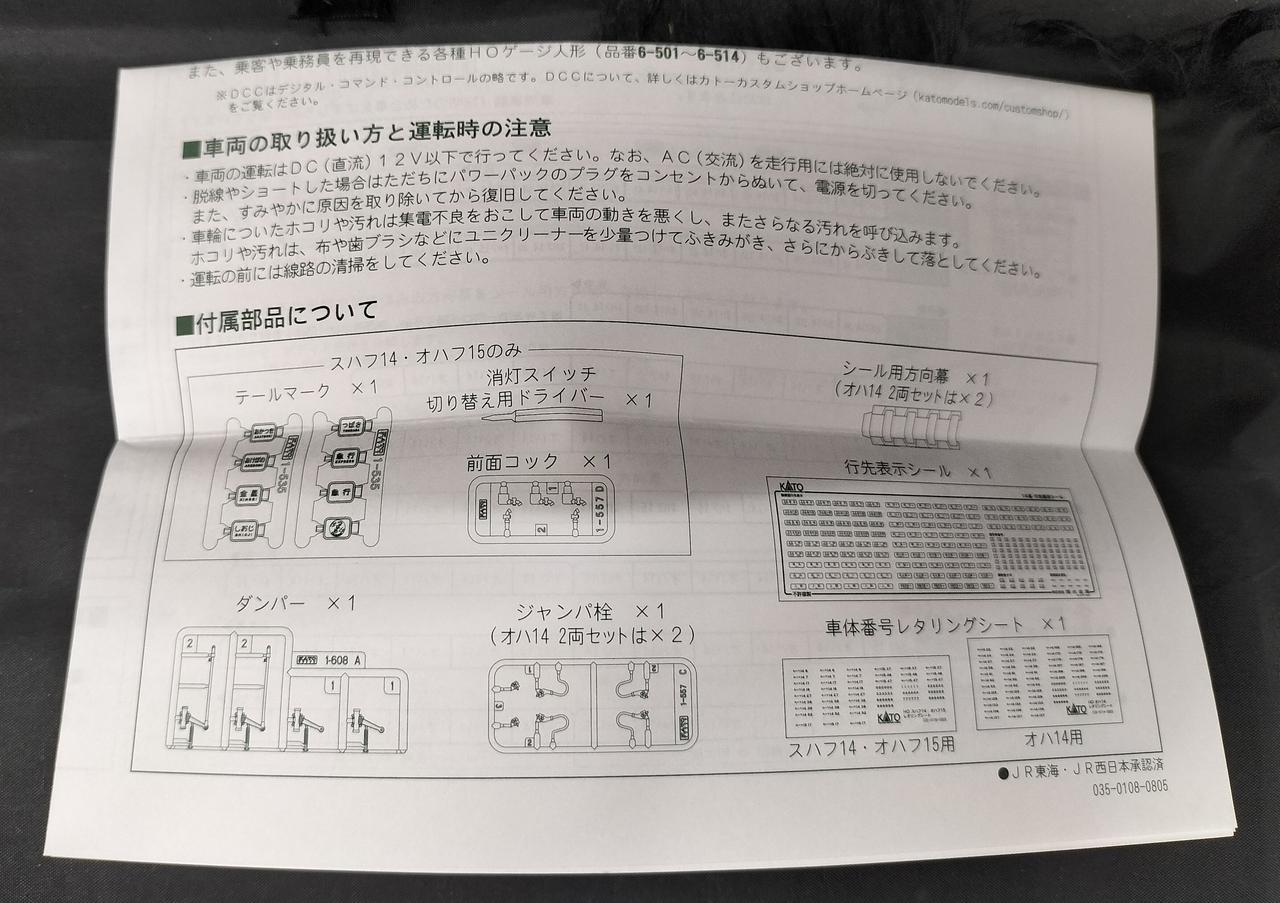 また、乗客や乗務員を再現できる各種ＨＯゲージ人形（品番6-501～6-514）もございます。
※ＤＣＣはデジタル・コマンド・コントロールの略です。ＤＣＣについて、詳しくはカトーカスタムショップホームページ（katomodels.com/customshop/）
をご覧ください。
■車両の取り扱い方と運転時の注意
・車両の運転はＤＣ（直流）１２Ｖ以下で行ってください。なお、ＡＣ（交流）を走行用には絶対に使用しないでください。
・脱線やショートした場合はただちにパワーパックのプラグをコンセントからぬいて、電源を切ってください。
また、すみやかに原因を取り除いてから復旧してください。
・車輪についたホコリや汚れは集電不良をおこして車両の動きを悪くし、またさらなる汚れを呼び込みます。
ホコリや汚れは、布や歯ブラシなどにユニクリーナーを少量つけてふきみがき、さらにからぶきして落としてください。
・運転の前には線路の清掃をしてください。
■付属部品について
スハフ14・オハフ15のみ
テールマーク ×１
消灯スイッチ
切り替え用ドライバー ×１
シール用方向幕 ×１
（オハ14 2両セットは×２）
あかつき
あけぼの
金星
しおじ
1-535
つばさ
急行
急行
1-535
前面コック ×１
1
2
1-557 D
行先表示シール ×１
KATO
不許複製
ダンパー ×１
2
2
1-608 A
1
1
ジャンパ栓 ×１
（オハ14 2両セットは×２）
1
2
3
2
1-557 C
車体番号レタリングシート ×１
KATO
KATO
スハフ14・オハフ15用
オハ14用
●ＪＲ東海・ＪＲ西日本承認済
035-0108-0805